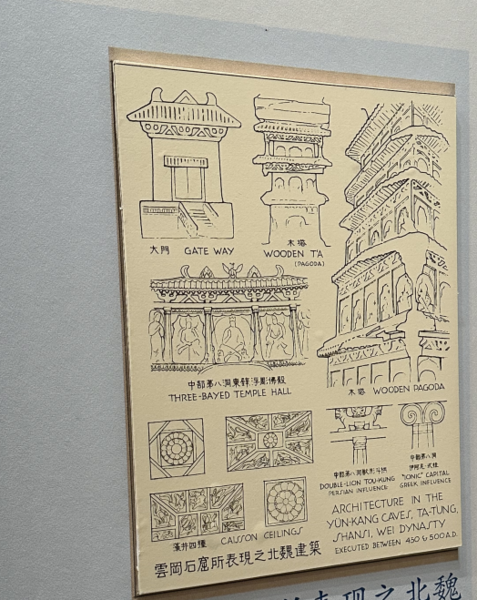 大門 GATE WAY
木塔
WOODEN T'A
(PAGODA)
中部第八洞東壁浮彫佛殿
THREE-BAYED TEMPLE HALL
木塔 WOODEN PAGODA
中部第八洞獸形斗栱
DOUBLE-LION TOU-KUNG
PERSIAN INFLUENCE
中部第八洞
"IONIC" CAPITAL
GREEK INFLUENCE
藻井四種 CAISSON CEILINGS
雲岡石窟所表現之北魏建築
ARCHITECTURE IN THE
YÜN-KANG CAVES, TA-TUNG,
SHANSI, WEI DYNASTY
EXECUTED BETWEEN 450 & 500 A.D.
表現之北魏